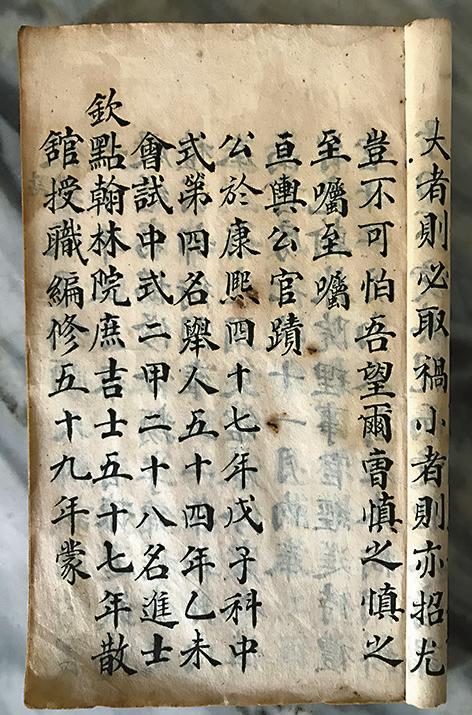 大者則必取禍小者則亦招尤
豈不可怕吾望爾曹慎之慎之
至囑至囑
亘輿公官蹟
公於康熙四十七年戊子科中
式第四名舉人五十四年乙未
會試中式二甲二十八名進士
欽點翰林院庶吉士五十七年散
舘授職編修五十九年蒙